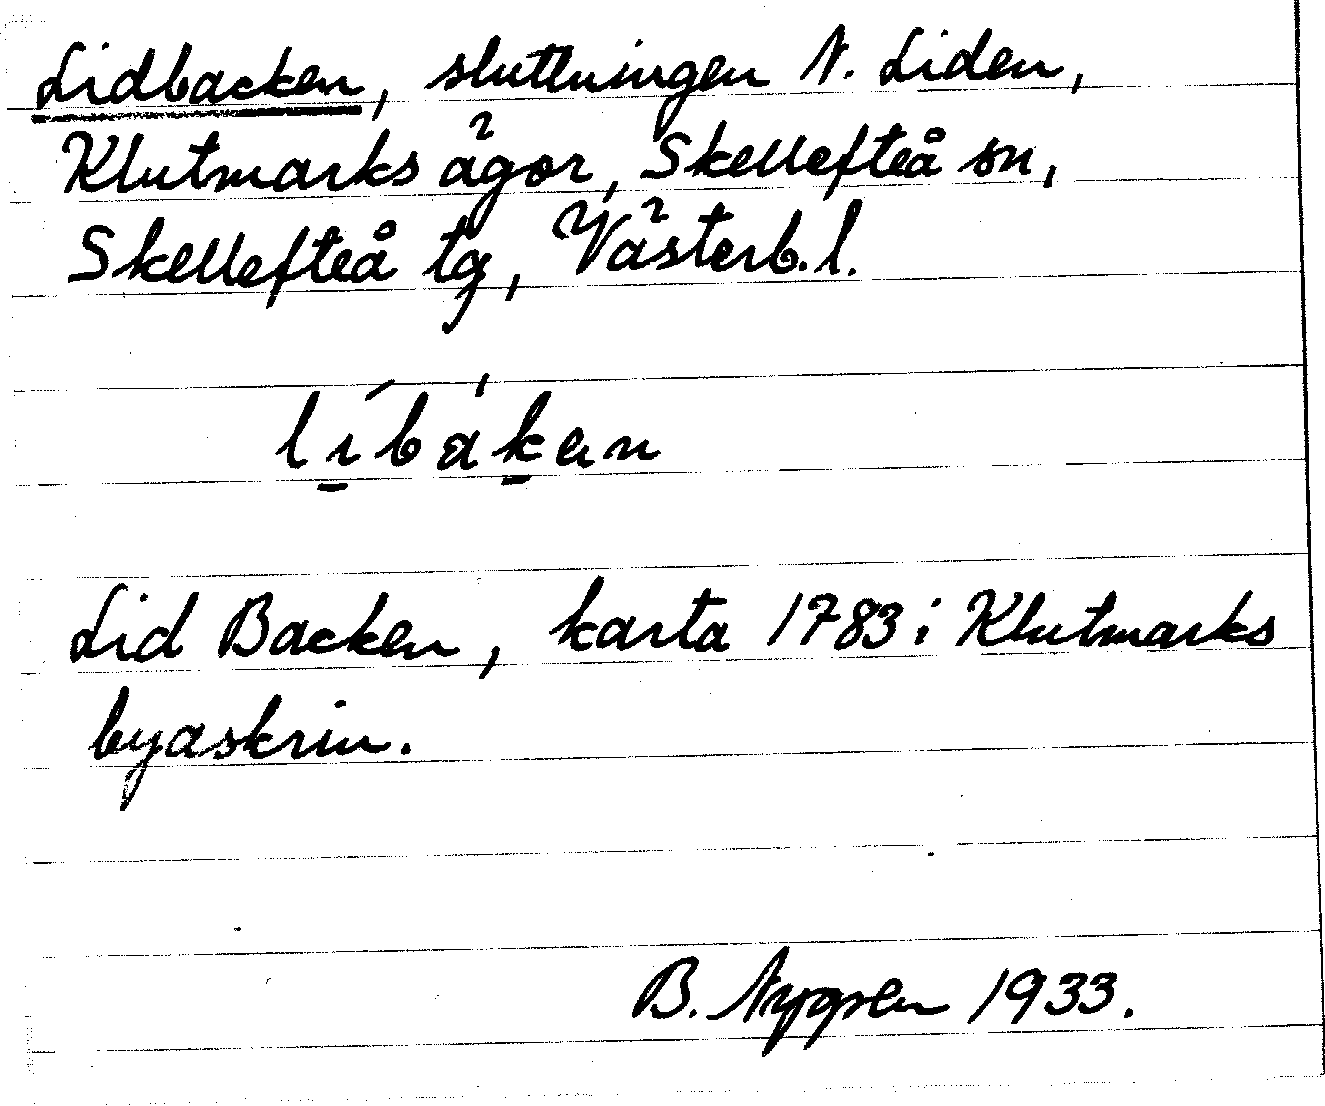 Lidbacken, sluttningen N. Liden,
Klutmarks ägor, Skellefteå sn,
Skellefteå tg, Västerb. l.
li̱bàḵen
Lid Backen, karta 1783 i Klutmarks
byaskrin.
B. Nygren 1933.